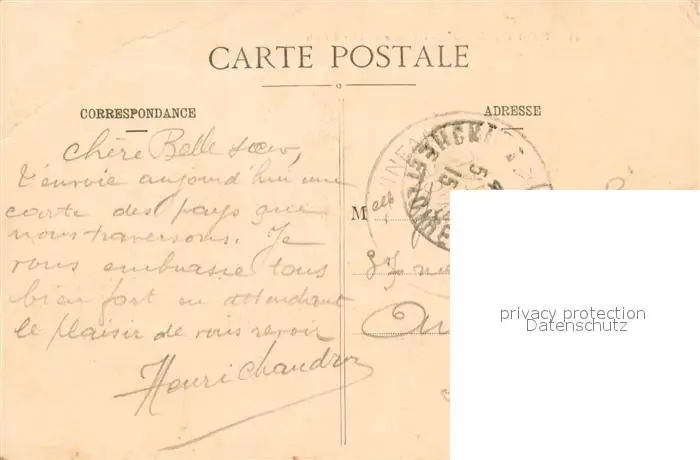 CARTE POSTALE
CORRESPONDANCE
ADRESSE
chère Belle sœur,
t'envoie aujourd'hui une
carte des pays que
nous traversons. Je
vous embrasse tous
bien fort en attendant
le plaisir de vous revoir
Henri
M elle
privacy protection
Datenschutz